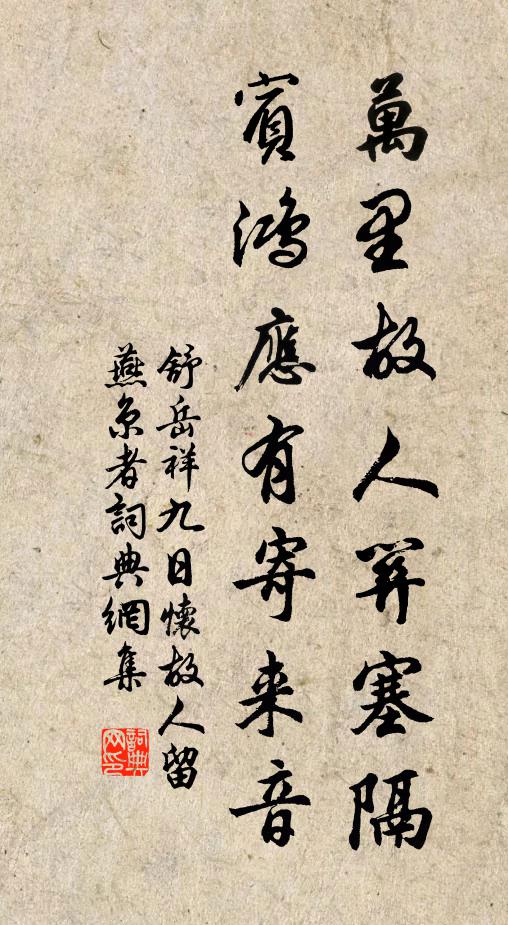 萬里故人關塞隔
賓鴻應有寄来音
舒岳祥九日懷故人留
燕京者詞典網集
詞典
网印